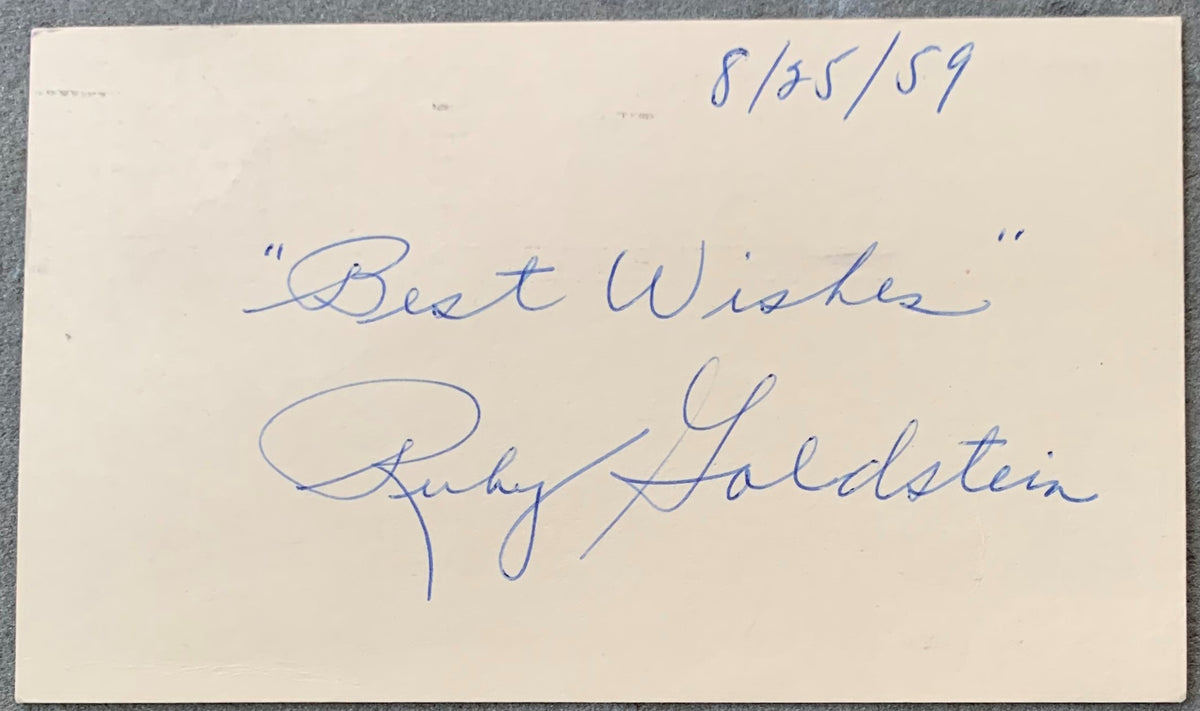 8/25/59
"Best Wishes"
Ruby Goldstein